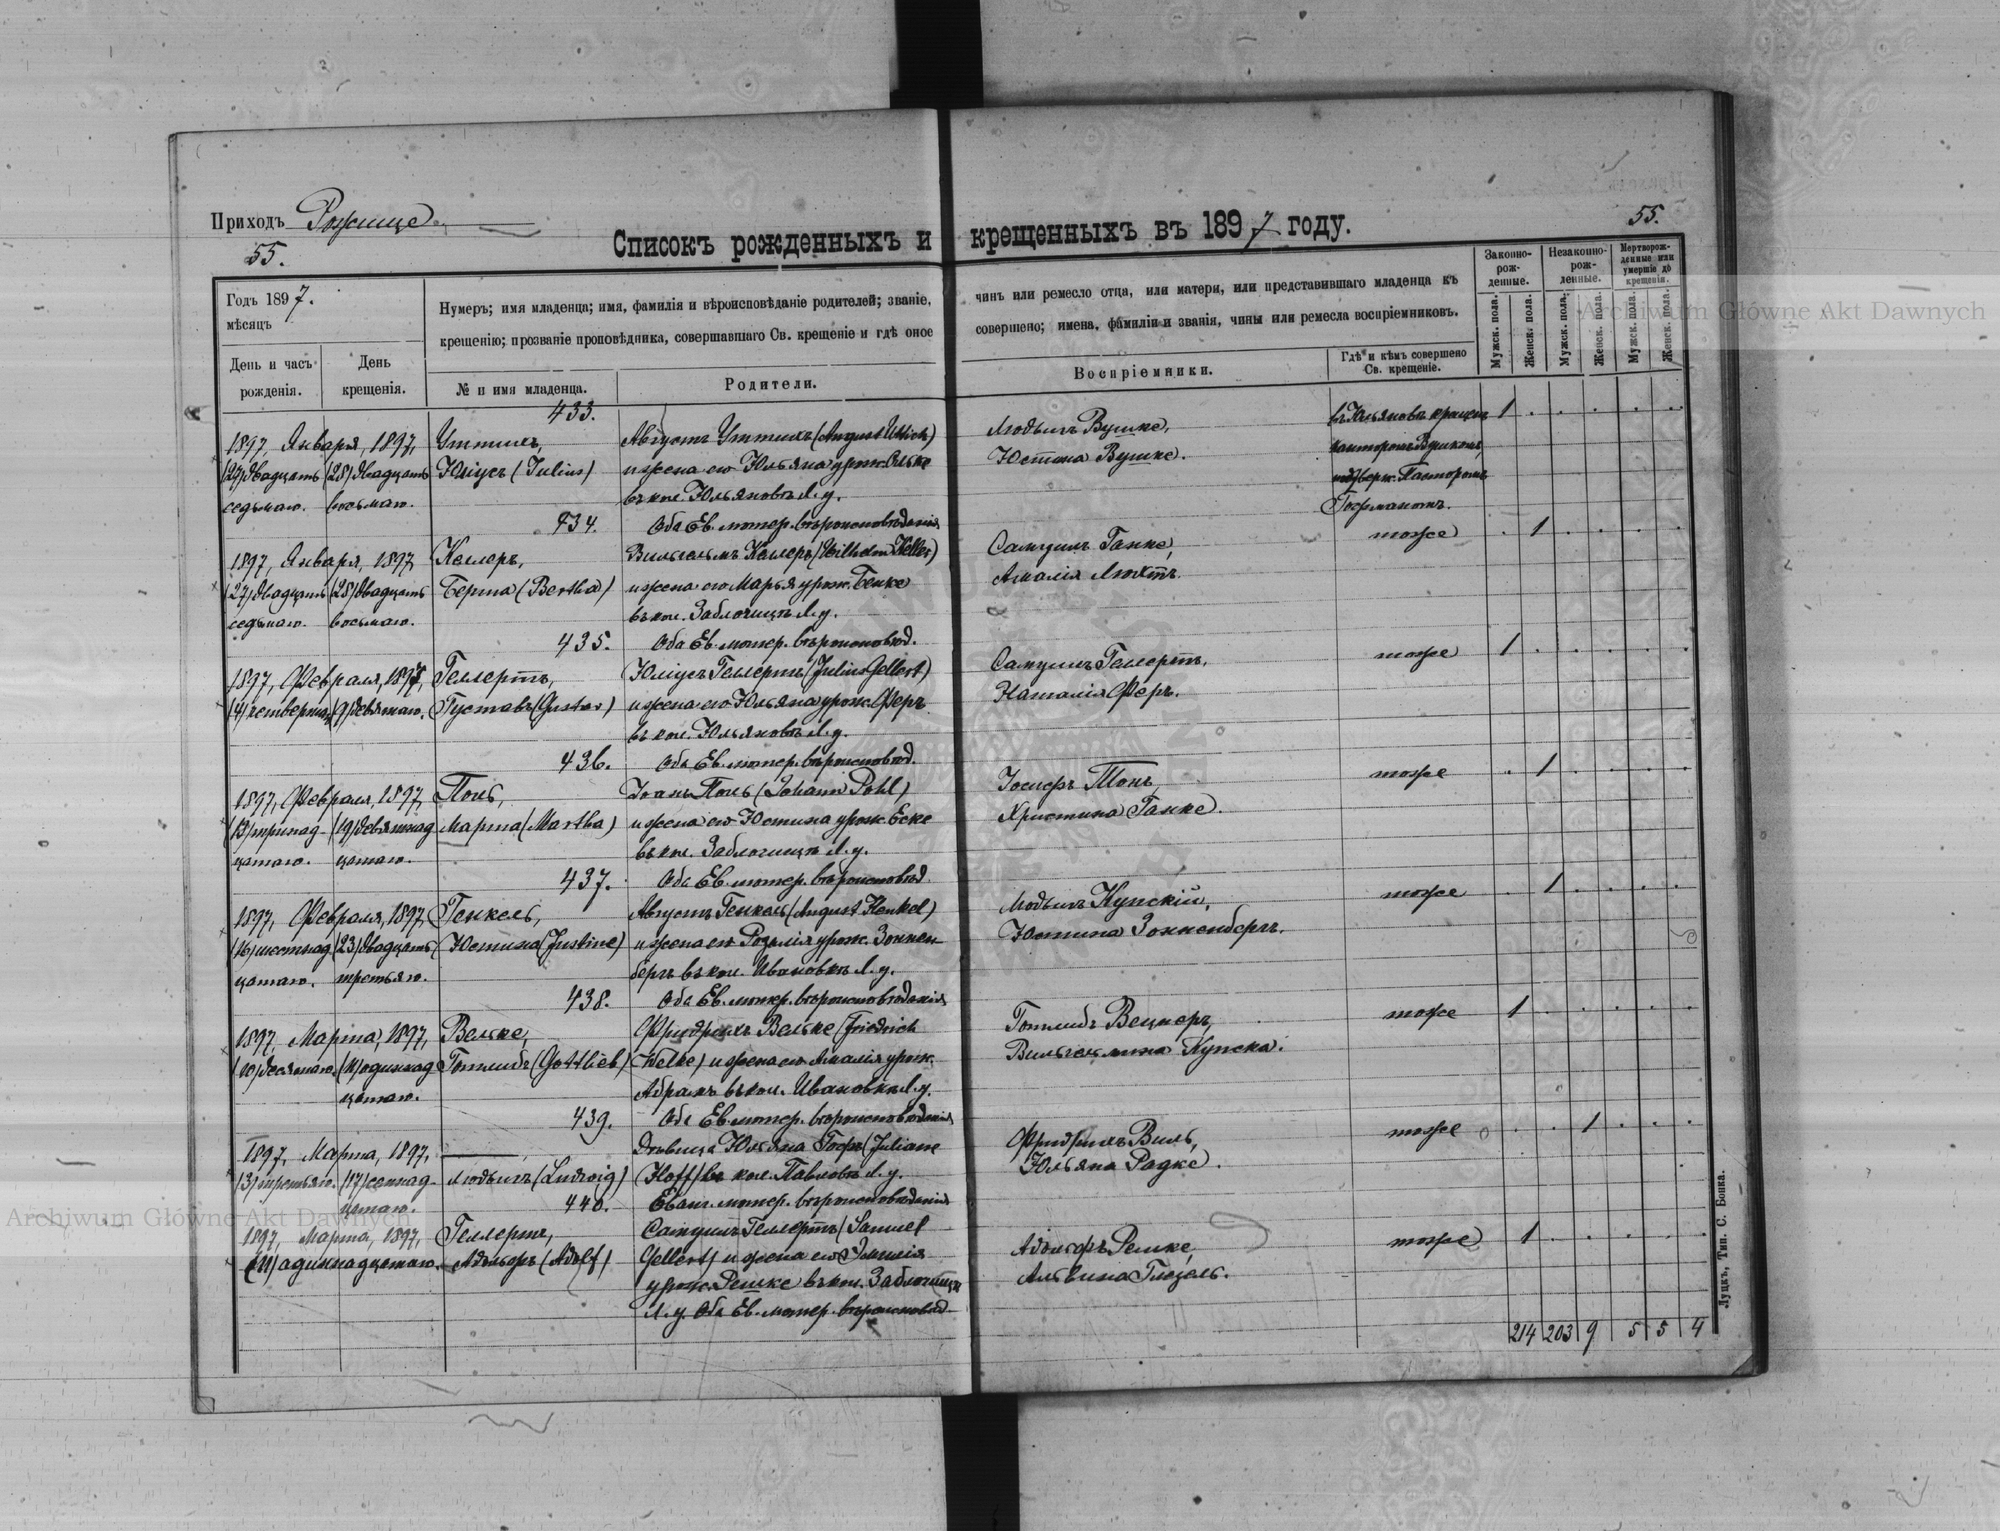 Приходъ Рожище.
55.
55.
Списокъ рожденныхъ и крещенныхъ въ 1897 году.
Годъ 1897.
мѣсяцъ
День и часъ рожденія.
День крещенія.
Нумеръ; имя младенца; имя, фамилія и вѣроисповѣданіе родителей; званіе, чинъ или ремесло отца, или матери, или представившаго младенца къ
крещенію; прозваніе проповѣдника, совершавшаго Св. крещеніе и гдѣ оное совершено; имена, фамиліи и званія, чины или ремесла воспріемниковъ.
№ и имя младенца.
Родители.
Воспріемники.
Гдѣ и кѣмъ совершено Св. крещеніе.
Законно-рож-денные.
Незаконно-рож-денные.
Мертворож-денные или умершіе до крещенія.
Мужск. пола.
Женск. пола.
Мужск. пола.
Женск. пола.
Мужск. пола.
Женск. пола.
433.
1897, Января, 1897, Уттихъ, Августъ Уттихъ (August Uttich) Людвигъ Вушке, въ Юльяновѣ крещенъ 1
(27) двадцать (28) двадцать Юліусъ (Julius) и жена его Юльяна урож. Юстина Вушке. канторомъ
седьмаго. восьмаго. въ кол. Юльяновѣ Л. у. подтверж. Пасторомъ
434. Оба Ев. лютер. вѣроисповѣданія Гофманомъ.
1897, Января, 1897 Келлеръ, Вильгельмъ Келлеръ (Wilhelm Keller) Самуилъ Ганке, тоже 1
(27) двадцать (28) двадцать Берта (Bertha) и жена его Марья урож. Генке Амалія Люхтъ.
седьмаго. восьмаго. въ кол. Заблочицѣ Л. у.
435. Оба Ев. лютер. вѣроисповѣд.
1897, Февраля, 1897, Геллертъ, Юліусъ Геллертъ (Julius Gellert) Самуилъ Геллертъ, тоже 1
(4) четвертаго (9) девятаго. Густавъ (Gustav) и жена его Юльяна урож. Феръ Наталія Феръ.
въ кол. Юльяновѣ Л. у.
436. Оба Ев. лютер. вѣроисповѣд.
1897, Февраля, 1897, Поль, Іоанъ Поль (Johann Pohl) Іосифъ Тонъ, тоже 1
(13) тринад- (19) девятнад Марта (Martha) и жена его Юстина урож. Еске Христина Ганке.
цатаго. цатаго. въ кол. Заблочицѣ Л. у.
437. Оба Ев. лютер. вѣроисповѣд.
1897, Февраля, 1897, Генкель, Августъ Генкель (August Henkel) Людвигъ Купскій, тоже 1
(16) шестнад (23) двадцать Юстина (Justine) и жена его Розалія урож. Зоннен Юстина Зонненбергъ.
цатаго. третьяго. бергъ въ кол. Ивановкѣ Л. у.
438. Оба Ев. лютер. вѣроисповѣданія
1897, Марта, 1897, Вельке, Фридрихъ Вельке (Friedrich Готлибъ Вецнеръ, тоже 1
(10) десятаго. (11) одиннад Готлибъ (Gottlieb) Welke) и жена его Амалія урож. Вильгельмина Купска.
цатаго. Абрамъ въ кол. Ивановкѣ Л. у.
439. Оба Ев. лютер. вѣроисповѣданія
1897, Марта, 1897, Дѣвица Юльяна Гофъ (Juliane Фридрихъ Виль, тоже 1
(3) третьяго. (17) семнад- Людвигъ (Ludwig) Hoff) въ кол. Павловѣ Л. у. Юльяна Радке.
цатаго. 440. Еванг. лютер. вѣроисповѣданія
1897, Марта, 1897, Геллертъ, Самуилъ Геллертъ (Samuel Адольфъ Решке, тоже 1
(11) одиннадцатаго. Адольфъ (Adolf) Gellert) и жена его Эмилія Альвина Глезель.
урож. Решке въ кол. Заблочицѣ
Л. у. Оба Ев. лютер. вѣроисповѣд.
214 203 9 5 5 4
Луцкъ, Тип. С. Бонка.
Archiwum Główne Akt Dawnych
Archiwum Główne Akt Dawnych